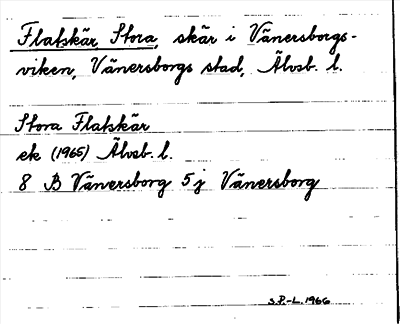 Flatskär, Stora, skär i Vänersborgs-
viken, Vänersborgs stad, Älvsb. l.
Stora Flatskär
ek (1965) Älvsb. l.
8 B Vänersborg 5j Vänersborg
S.P.-L. 1966